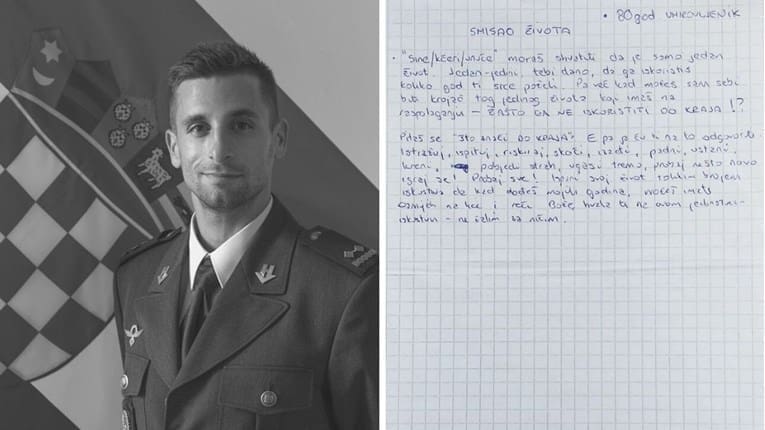 • 80 god UMIROVLJENIK
SMISAO ŽIVOTA
• "Sine/kćeri/unuče" moraš shvatiti da je samo jedan
život. Jedan-jedini, tebi dano, da ga iskoristiš
koliko god ti srce poželi. Pa već kad možeš sam sebi
biti krojač tog jednog života koji imaš na
raspolaganju - ZAŠTO GA NE ISKORISTITI DO KRAJA!?
Pitaš se "što znači DO KRAJA". E pa ja ću ti na to odgovoriti.
Istražuj, ispituj, riskiraj, skoči, izađi, padni, ustani,
kreni, pobjedi strah, ugasi tremu, pruži nešto novo
igraj se! Probaj sve! Ispuni svoj život tolikim brojem
iskustva da kad dođeš mojih godina, možeš imati
osmjeh na lice i reći Bože hvala ti na ovom jedinstvenom
iskustvu - ne žalim za ničim.